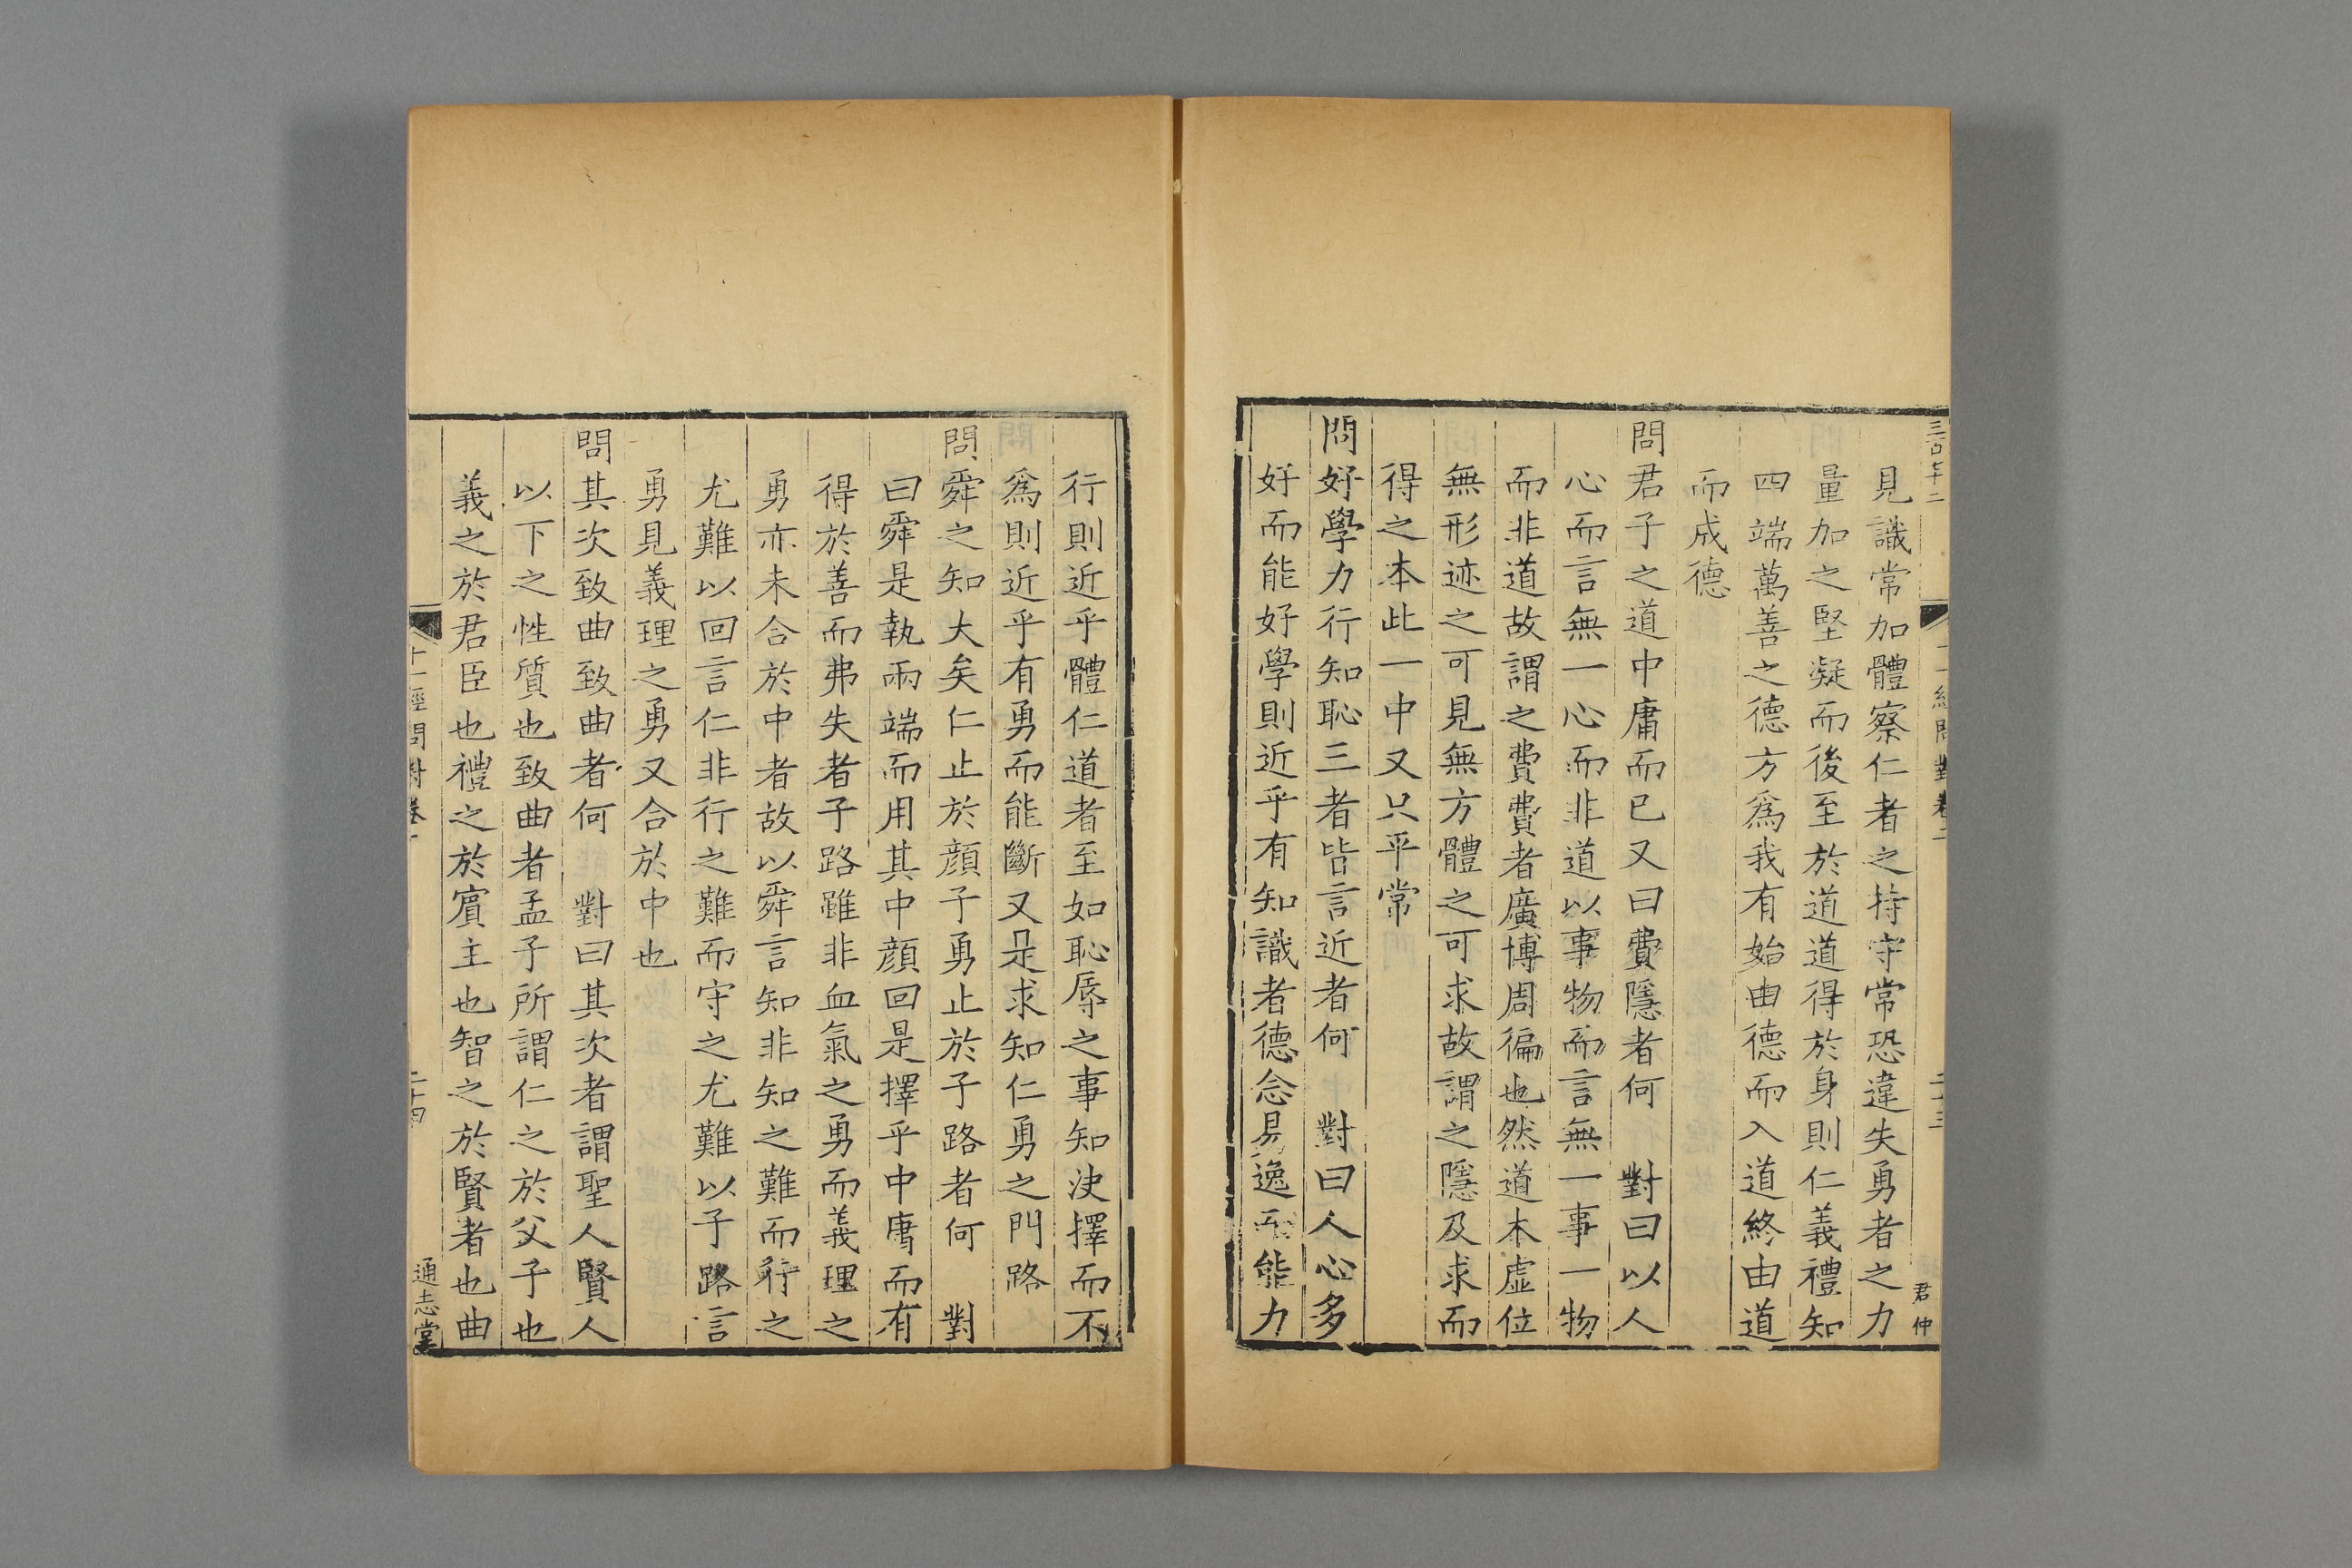 三百七十二
十一經問對卷二
二十三
君仲
見識常加體察仁者之持守常恐違失勇者之力
量加之堅凝而後至於道道得於身則仁義禮知
四端萬善之德方爲我有始由德而入道終由道
而成德
問君子之道中庸而已又曰費隱者何 對曰以人
心而言無一心而非道以事物而言無一事一物
而非道故謂之費費者廣博周徧也然道本虛位
無形迹之可見無方體之可求故謂之隱及求而
得之本此一中又只平常
問好學力行知恥三者皆言近者何 對曰人心多
好而能好學則近乎有知識者德念易逸而能力
行則近乎體仁道者至如恥辱之事知決擇而不
爲則近乎有勇而能斷又是求知仁勇之門路
問舜之知大矣仁止於顔子勇止於子路者何 對
曰舜是執兩端而用其中顔回是擇乎中庸而有
得於善而弗失者子路雖非血氣之勇而義理之
勇亦未合於中者故以舜言知非知之難而行之
尤難以回言仁非行之難而守之尤難以子路言
勇見義理之勇又合於中也
問其次致曲致曲者何 對曰其次者謂聖人賢人
以下之性質也致曲者孟子所謂仁之於父子也
義之於君臣也禮之於賓主也智之於賢者也曲
十一經問對卷
二十四
通志堂